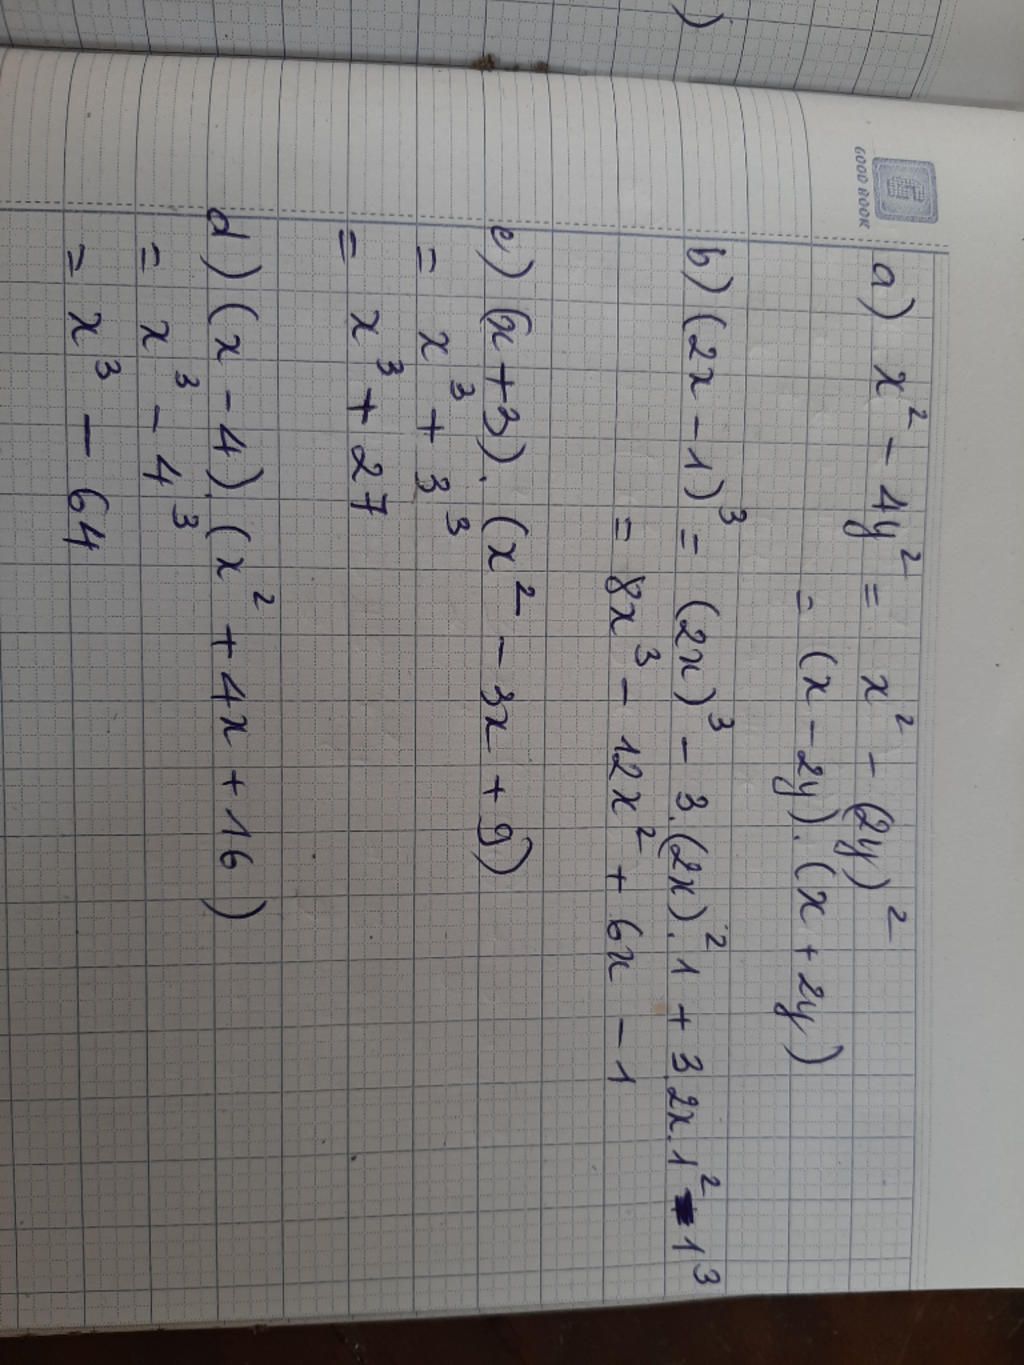 GOOD BOOK
)
a) x² - 4y² = x² - (2y)²
= (x - 2y).(x + 2y)
b) (2x - 1)³ = (2x)³ - 3.(2x)².1 + 3.2x.1² - 1³
= 8x³ - 12x² + 6x - 1
c) (x + 3).(x² - 3x + 9)
= x³ + 3³
= x³ + 27
d) (x - 4).(x² + 4x + 16)
= x³ - 4³
= x³ - 64